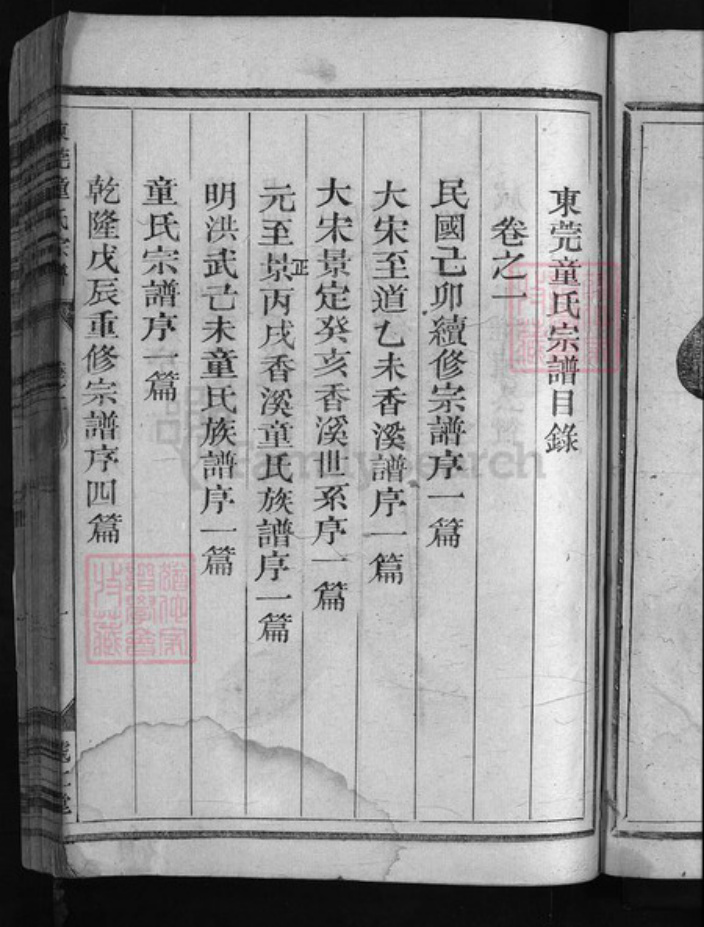 東莞童氏宗譜目錄
卷之一
民國己卯續修宗譜序一篇
大宋至道乙未香溪譜序一篇
大宋景定癸亥香溪世系序一篇
元至景正丙戌香溪童氏族譜序一篇
明洪武己未童氏族譜序一篇
童氏宗譜序一篇
乾隆戊辰重修宗譜序四篇
東莞童氏宗譜
FamilySearch